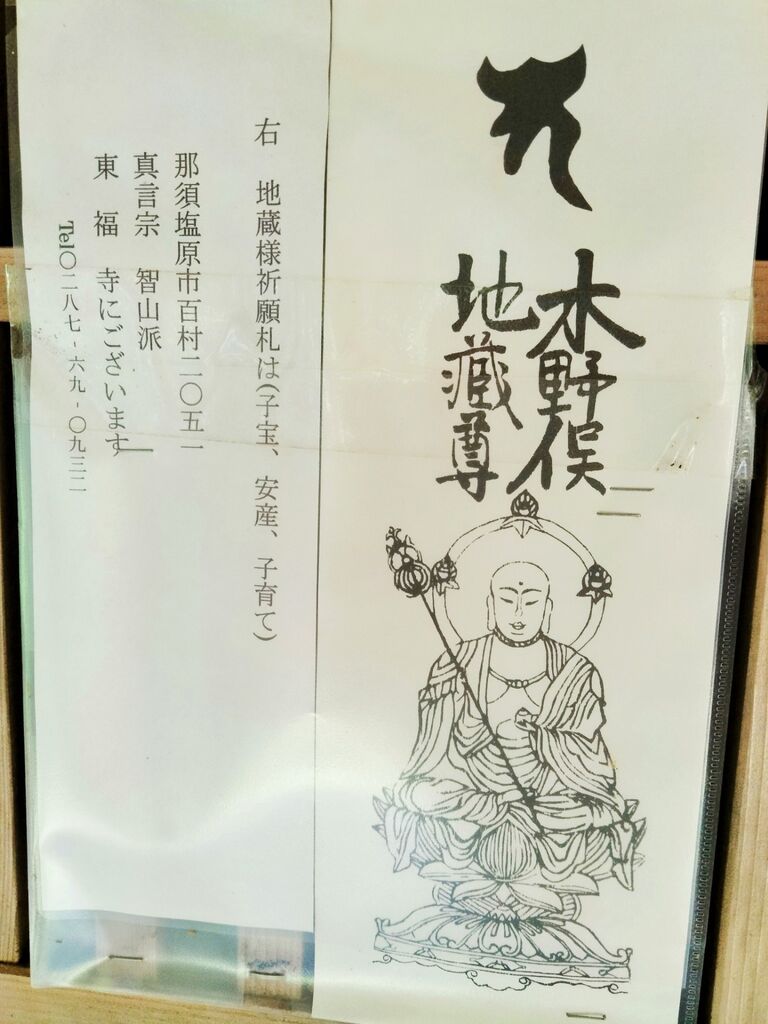 木野俣
地蔵尊
右　地蔵様祈願札は(子宝、安産、子育て)
那須塩原市百村二〇五一
真言宗　智山派
東　福　寺にございます
Tel〇二八七-六九-〇九三二